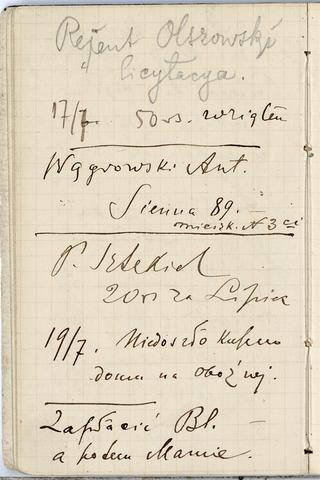 Rejent Olszowski
licytacya.
17/7. 50 rs. wziąłem
Wągrowski Ant.
Sienna 89.
mieszk. N 3 ci
P.
20 rs za Lipiec
19/7. Niedoszło kupno
domu na oboźnej.
Zapłacić Bł.
a potem Mamie.